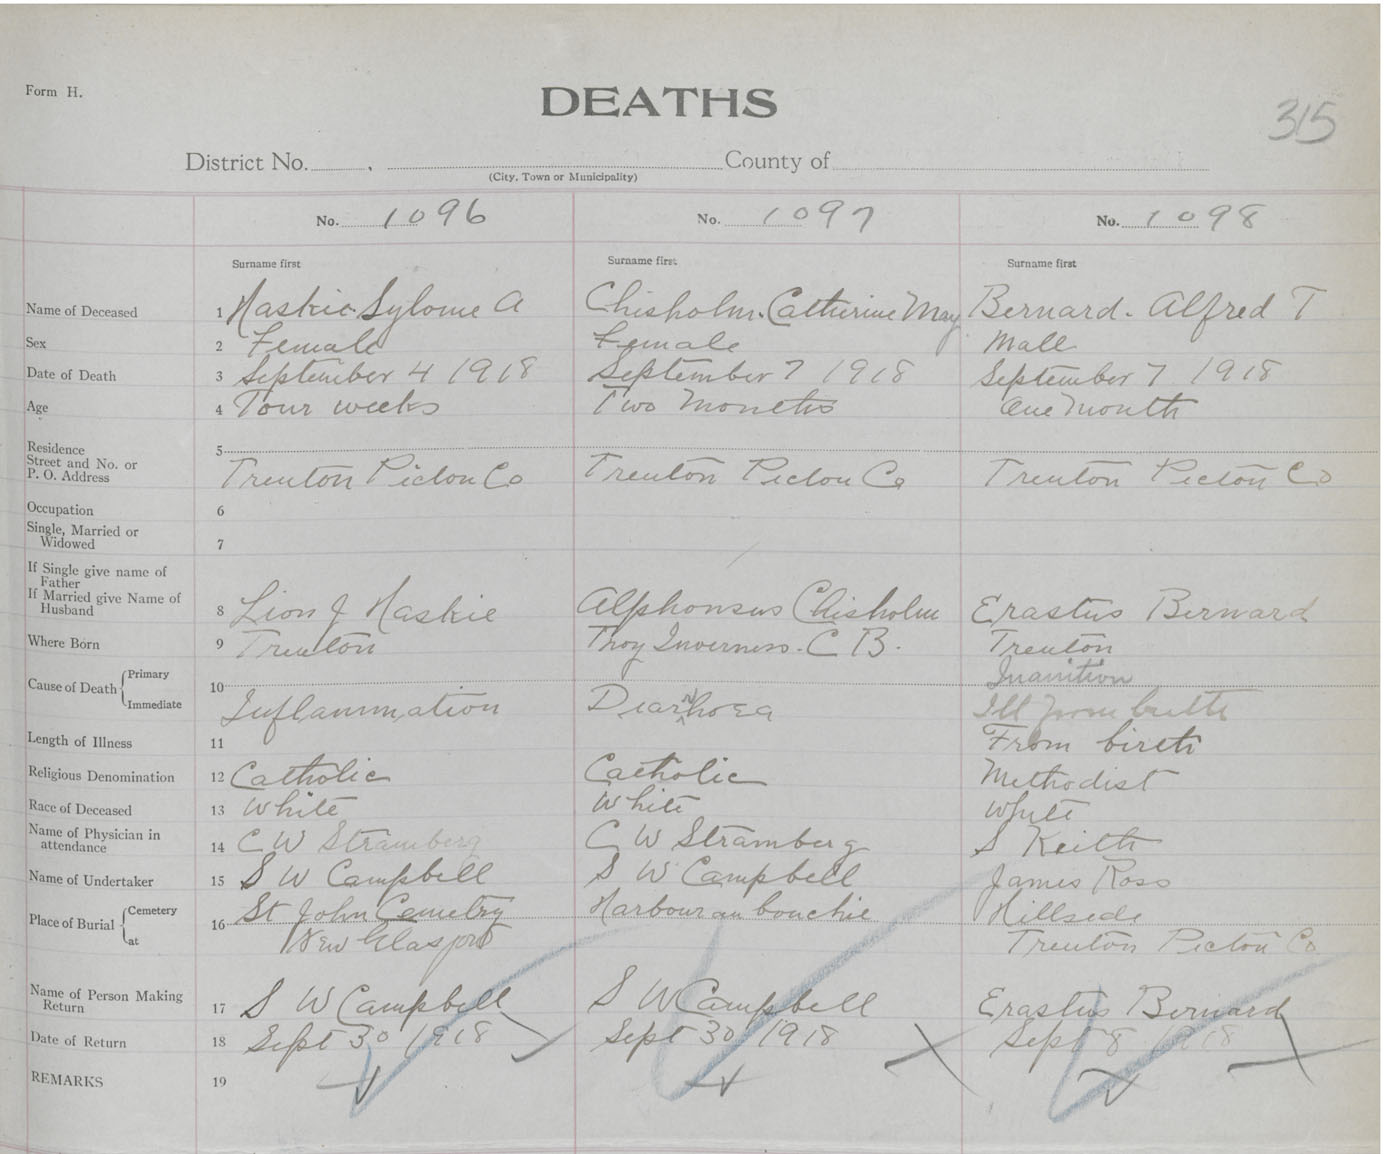 Form H.
DEATHS
315
District No. , County of
(City, Town or Municipality)
No. 1096 No. 1097 No. 1098
Surname first Surname first Surname first
Name of Deceased 1 Haskie Sylome A Chisholm. Catherine May Bernard. Alfred T
Sex 2 Female Female Male
Date of Death 3 September 4 1918 September 7 1918 September 7 1918
Age 4 Four weeks Two Months One Month
Residence 5
Street and No. or
P. O. Address Trenton Pictou Co Trenton Pictou Co Trenton Pictou Co
Occupation 6
Single, Married or
Widowed 7
If Single give name of
Father
If Married give Name of
Husband 8 Lion J Haskie Alphonsus Chisholm Erastus Bernard
Where Born 9 Trenton Troy Inverness. C B. Trenton
Cause of Death Primary 10 Inanition
Immediate Inflammation Diarrhoea Ill from birth
Length of Illness 11 From birth
Religious Denomination 12 Catholic Catholic Methodist
Race of Deceased 13 White White White
Name of Physician in
attendance 14 C W Stramberg C W Stramberg S Keith
Name of Undertaker 15 S W Campbell S W Campbell James Ross
Place of Burial Cemetery 16 St John Cemetry Harbour au bouchie Hillside
at New Glasgow Trenton Pictou Co
Name of Person Making
Return 17 S W Campbell S W Campbell Erastus Bernard
Date of Return 18 Sept 30 1918 Sept 30 1918 Sept 8 1918
REMARKS 19